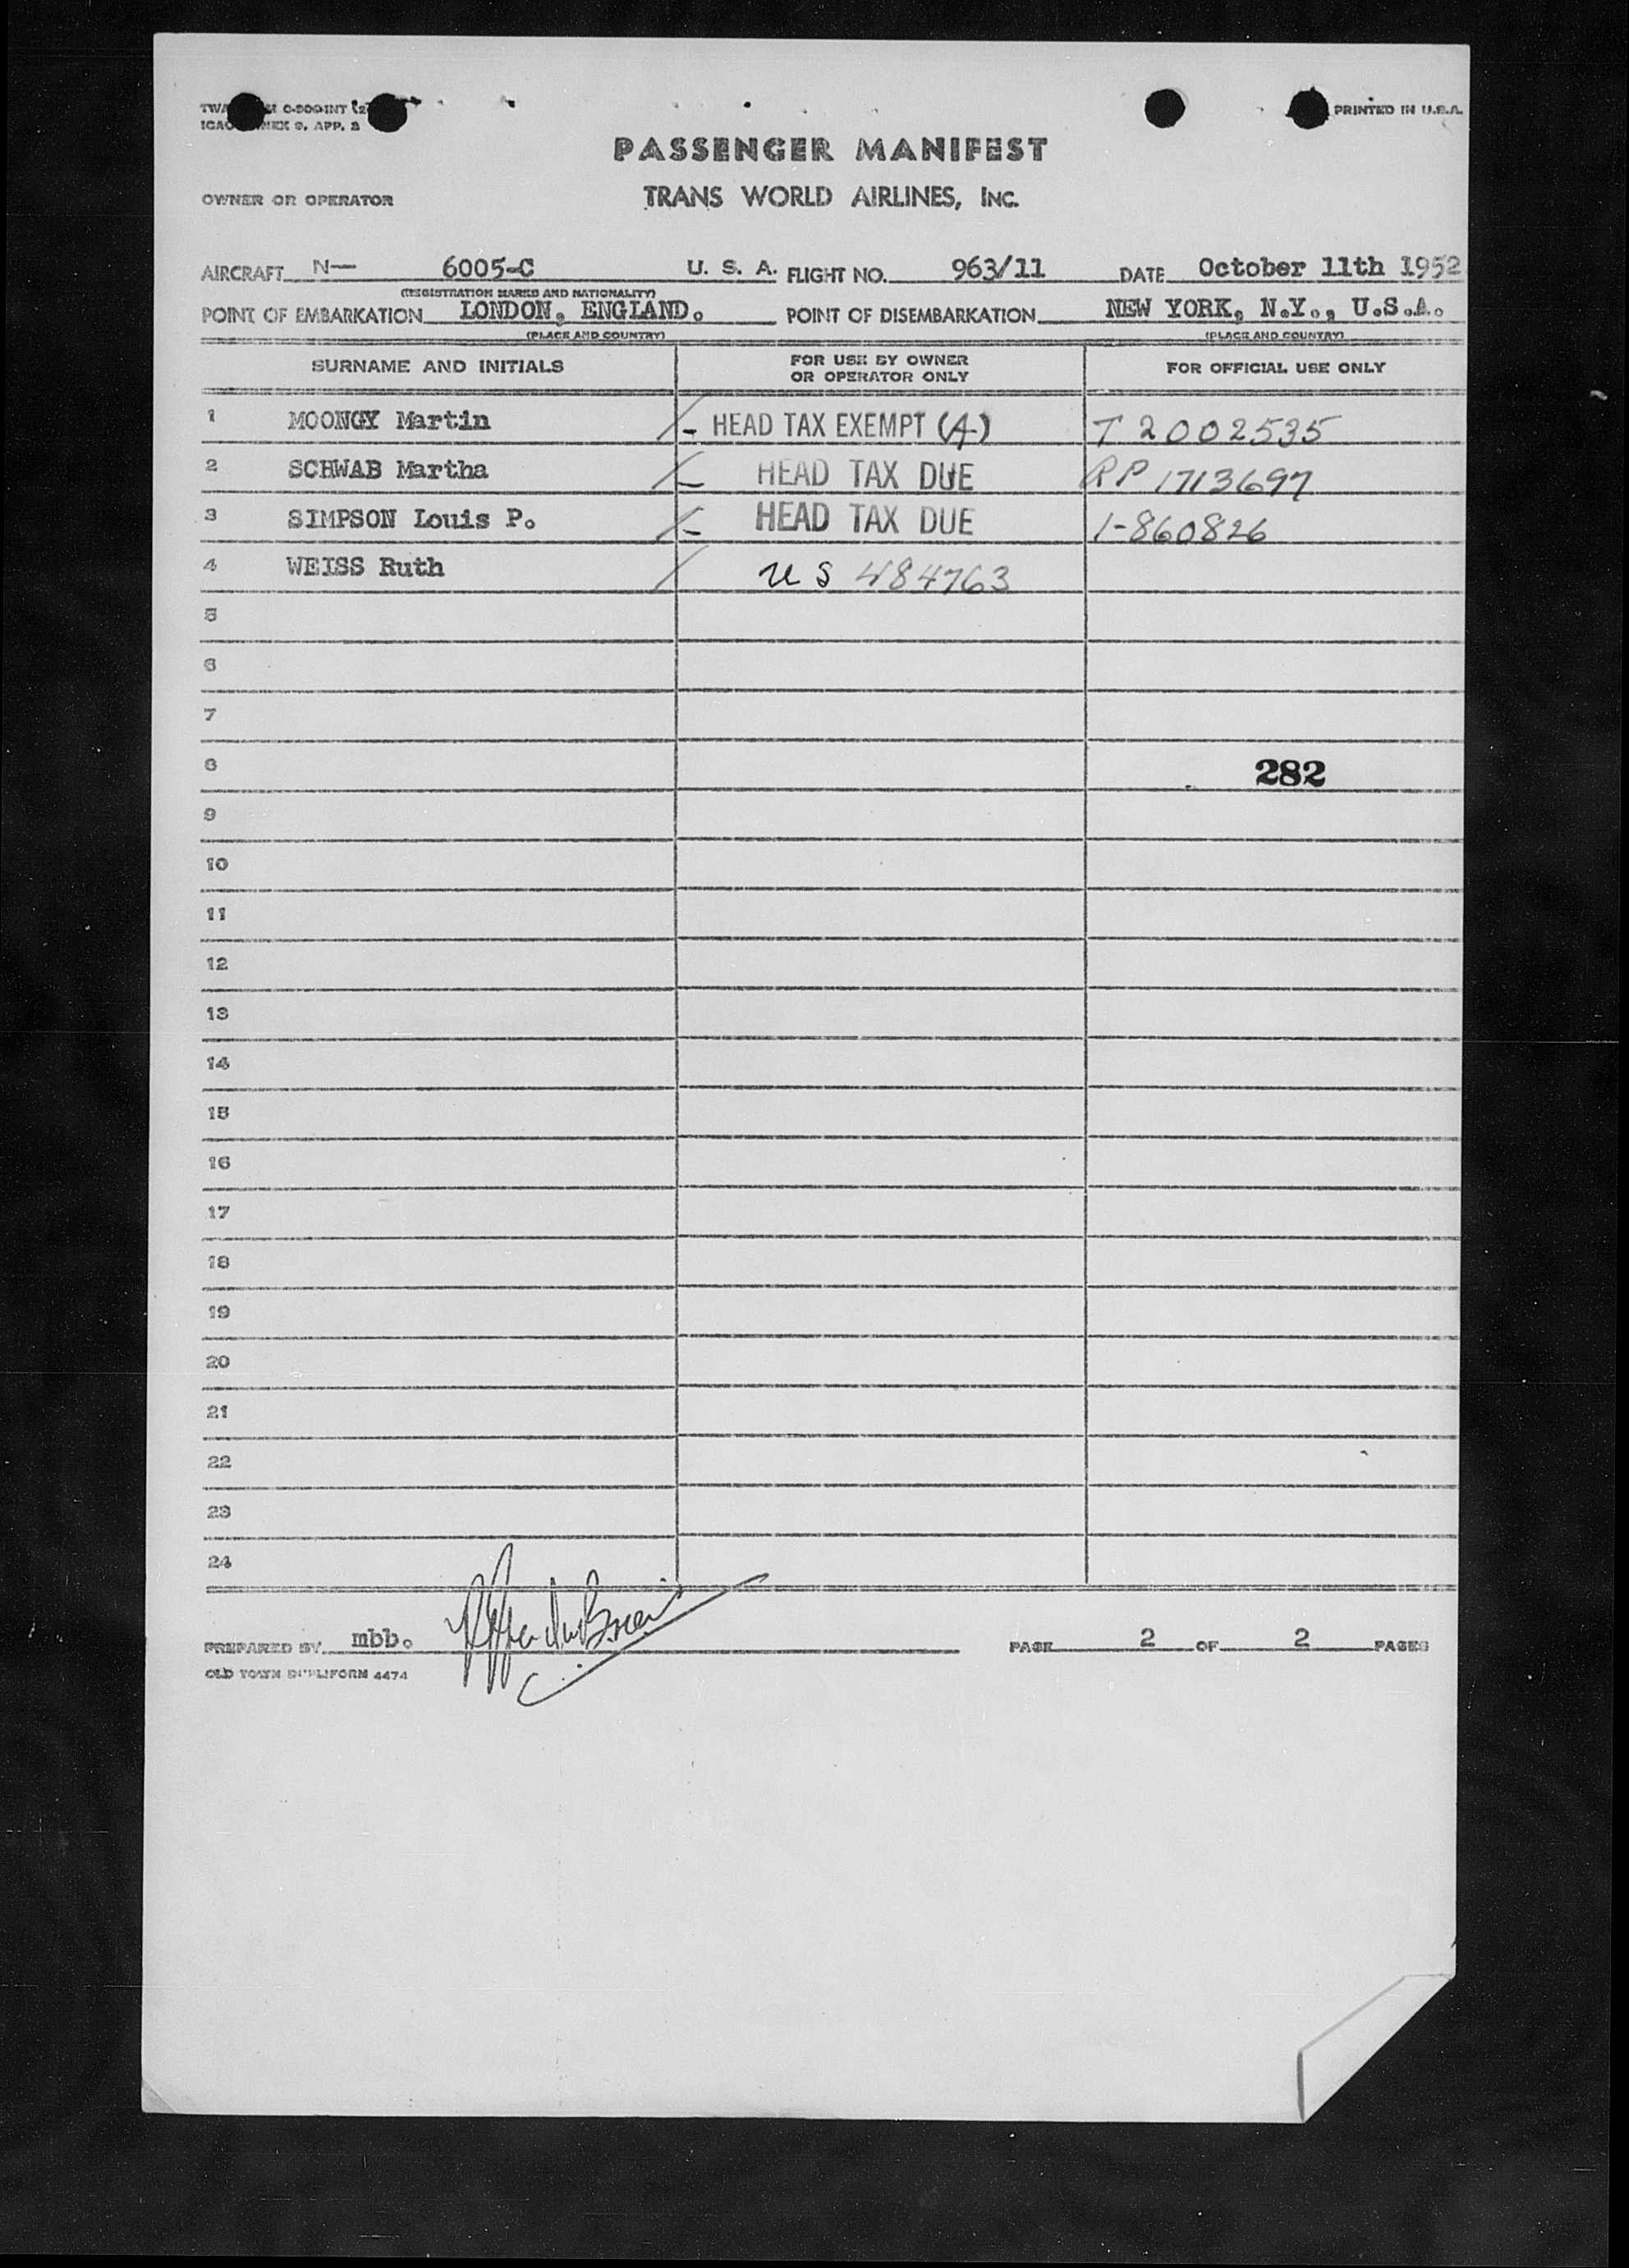 PRINTED IN U.S.A.
PASSENGER MANIFEST
OWNER OR OPERATOR TRANS WORLD AIRLINES, INC.
AIRCRAFT N— 6005-C U. S. A. FLIGHT NO. 963/11 DATE October 11th 1952
(REGISTRATION MARKS AND NATIONALITY)
POINT OF EMBARKATION LONDON, ENGLAND. POINT OF DISEMBARKATION NEW YORK, N.Y., U.S.A.
(PLACE AND COUNTRY) (PLACE AND COUNTRY)
SURNAME AND INITIALS FOR USE BY OWNER OR OPERATOR ONLY FOR OFFICIAL USE ONLY
1 MOONGY Martin HEAD TAX EXEMPT (A) T 2002535
2 SCHWAB Martha HEAD TAX DUE RP 1713697
3 SIMPSON Louis P. HEAD TAX DUE 1-860826
4 WEISS Ruth US 484763
5
6
7
8 282
9
10
11
12
13
14
15
16
17
18
19
20
21
22
23
24
PREPARED BY mbb. PAGE 2 OF 2 PAGES
OLD TOWN DUPLIFORM 4474